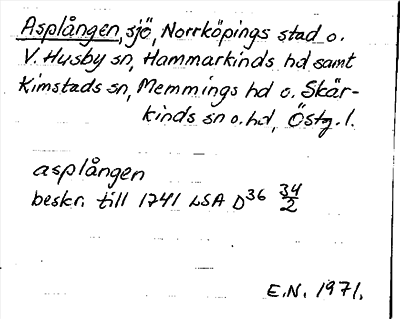 Asplången, sjö, Norrköpings stad o.
V. Husby sn, Hammarkinds hd samt
Kimstads sn, Memmings hd o. Skär-
kinds sn o. hd, Östg. l.
asplången
beskr. till 1741 LSA D36 34/2
E.N. 1971.